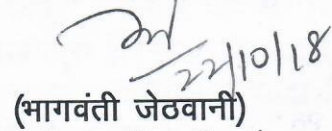 22/10/18
(भागवंती जेठवानी)